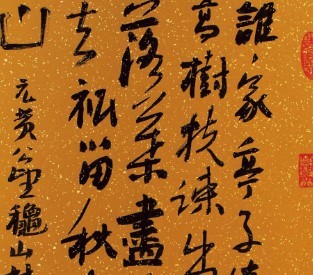 誰家亭子傍
高樹扶疎出
落葉盡
去祗留秋
山
元黃公望穐山